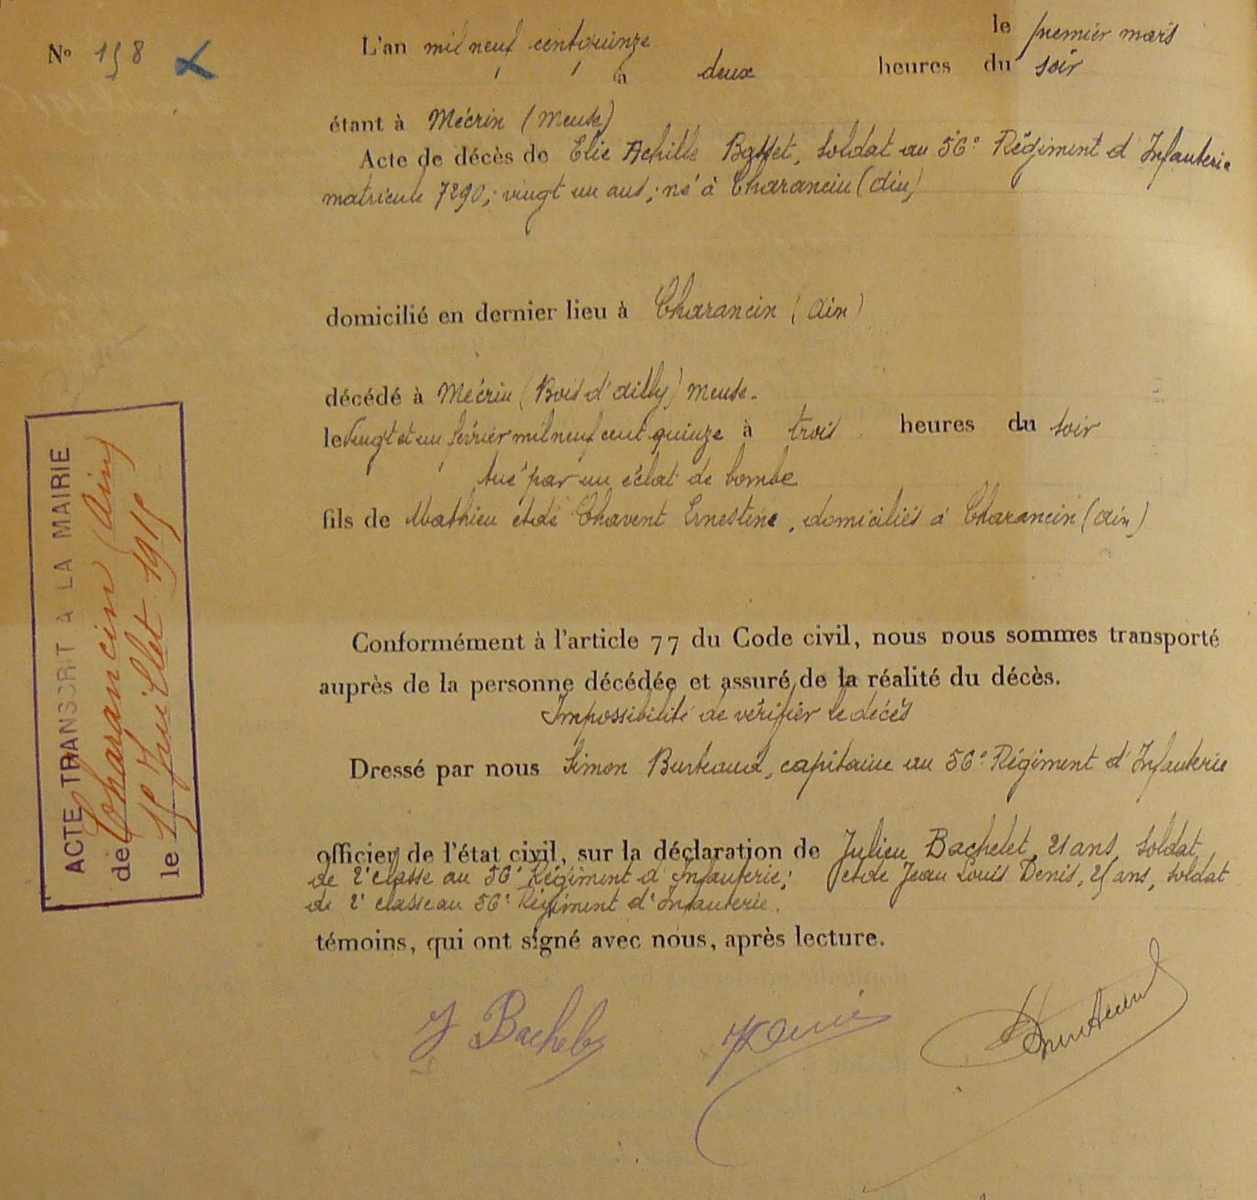 N° 158
L'an mil neuf cent quinze le premier mars
à deux heures du soir
étant à Mécrin (Meuse)
Acte de décès de Elie Achille Basset, soldat au 56e Régiment d'Infanterie
matricule 7290; vingt un ans; né à Charancin (Ain)
domicilié en dernier lieu à Charancin (Ain)
décédé à Mécrin (Bois d'Ailly) Meuse.
le vingt et un février mil neuf cent quinze à trois heures du soir
tué par un éclat de bombe
fils de Mathieu et de Chavent Ernestine, domiciliés à Charancin (Ain)
Conformément à l'article 77 du Code civil, nous nous sommes transporté
auprès de la personne décédée et assuré de la réalité du décès.
Impossibilité de vérifier le décès
Dressé par nous Simon capitaine au 56e Régiment d'Infanterie
officier de l'état civil, sur la déclaration de Julien Bachelet, 21 ans, soldat
de 2e classe au 56e Régiment d'Infanterie; et de Jean Louis Denis, 25 ans, soldat
de 2e classe au 56e Régiment d'Infanterie.
témoins, qui ont signé avec nous, après lecture.
J Bachelet
ACTE TRANSCRIT A LA MAIRIE
de Charancin (Ain)
le 15 Juillet 1915